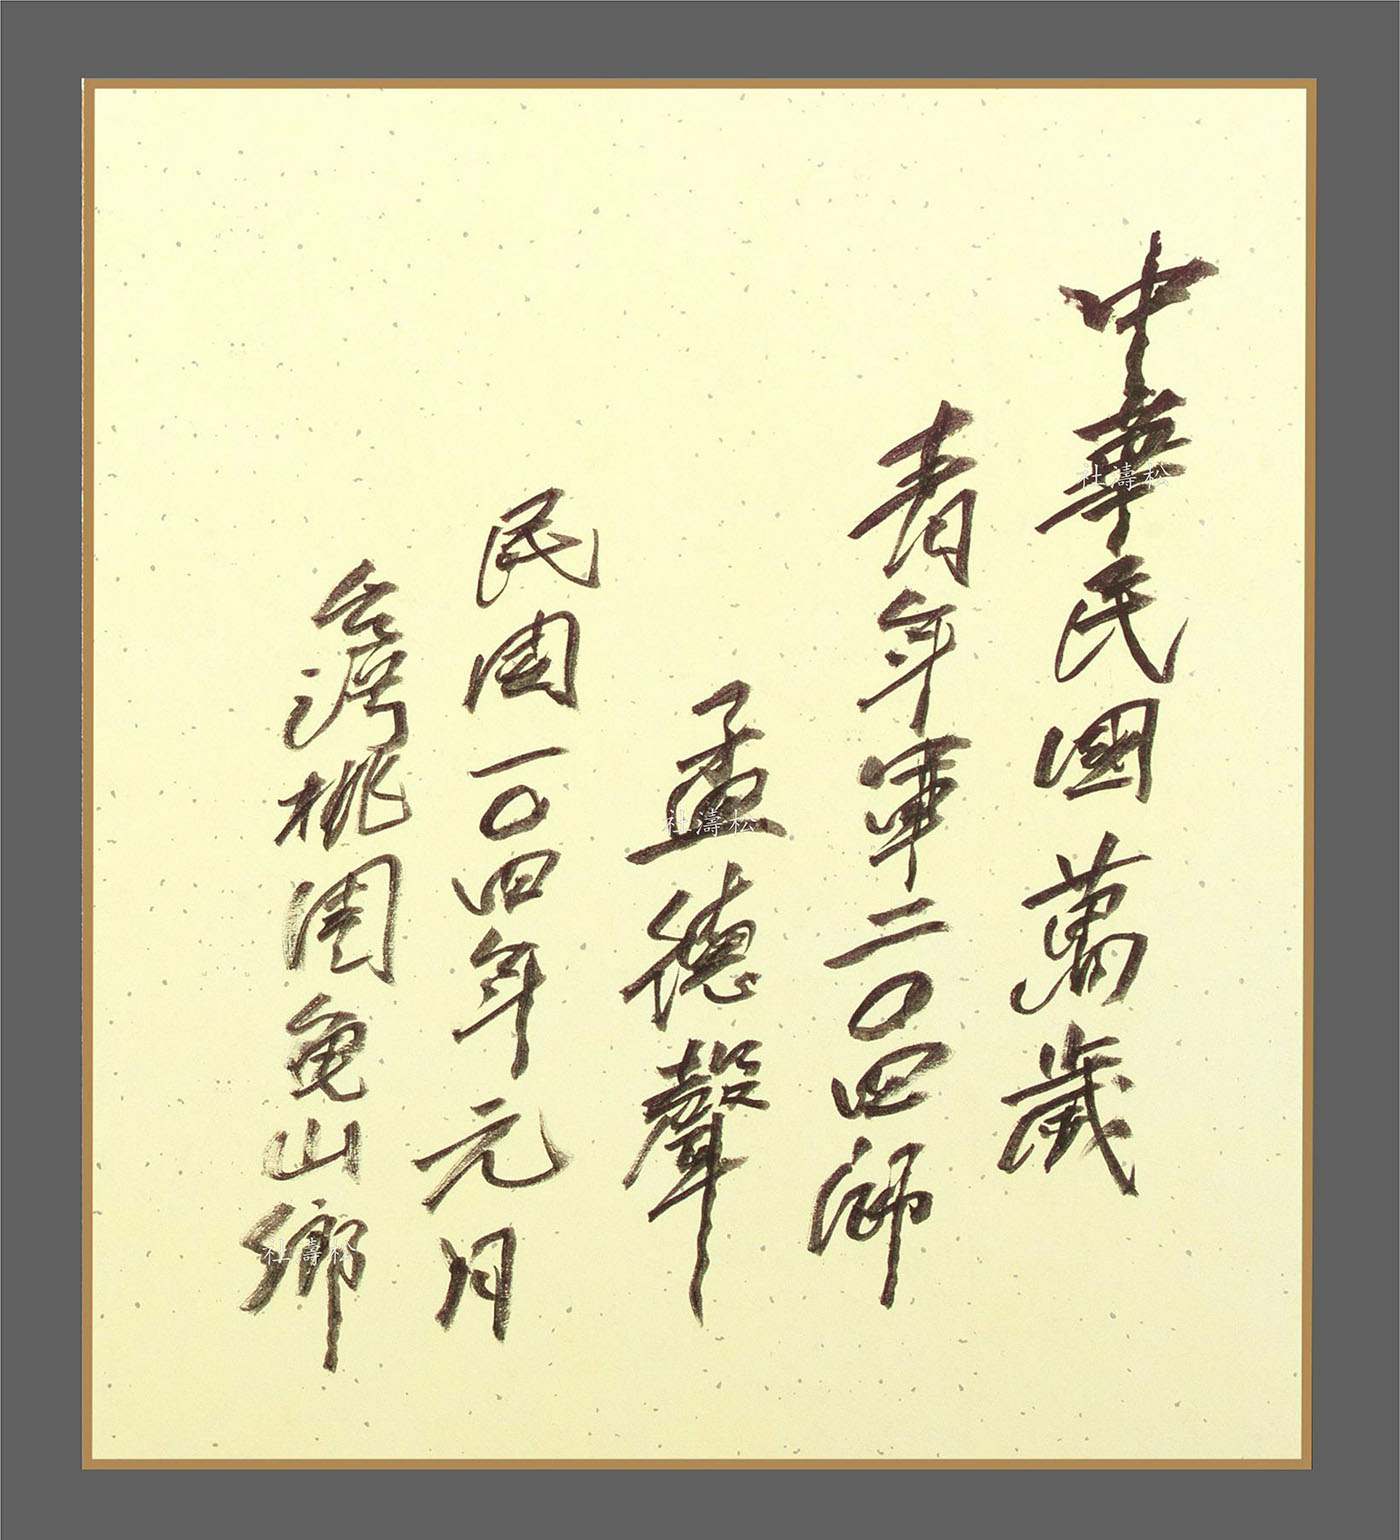 中華民國萬歲
青年軍二〇四師
孟德聲
民国一〇四年元月
台灣桃园龟山鄉
杜濤松
杜濤松
杜濤松